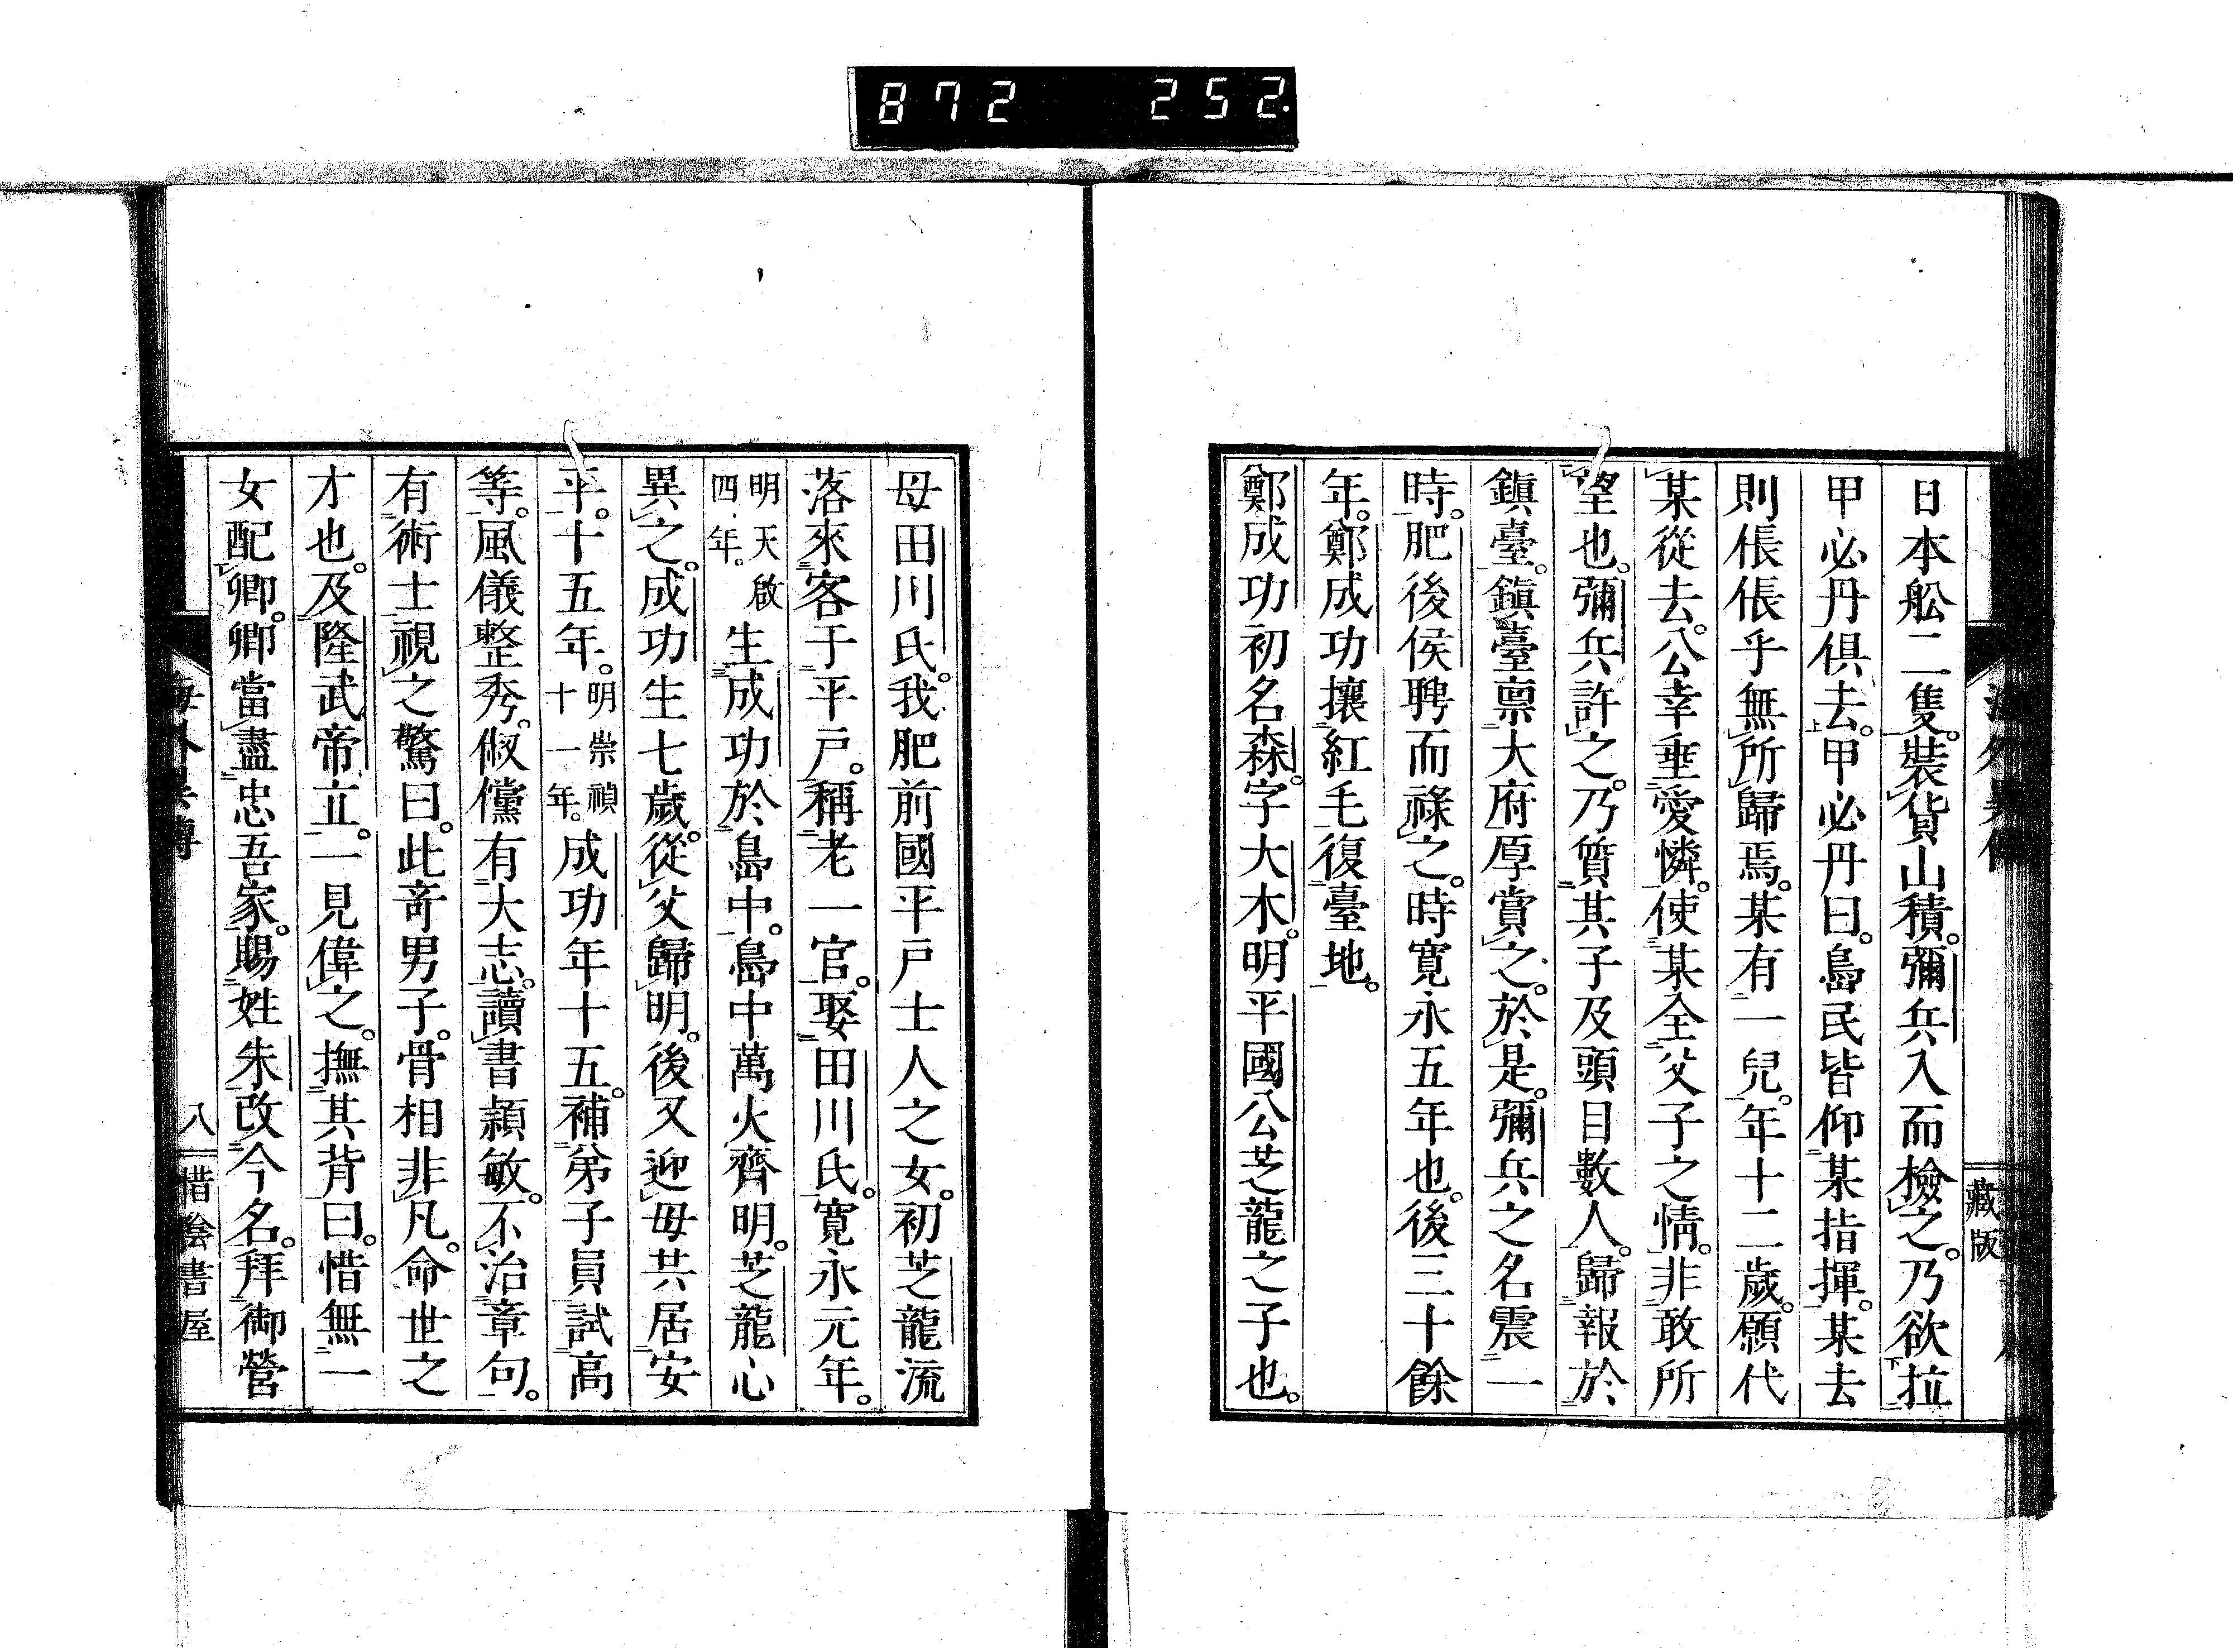 872 252
藏版
日本舩二隻。裝貨山積。彌兵入而檢之。乃欲拉
甲必丹俱去。甲必丹曰。島民皆仰某指揮。某去
則倀倀乎無所歸焉。某有一兒。年十二歲。願代
某從去。公幸垂愛憐。使某全父子之情。非敢所
望也。彌兵許之。乃質其子及頭目數人。歸報於
鎭臺。鎭臺禀大府厚賞之。於是。彌兵之名震一
時。肥後侯聘而祿之。時寛永五年也。後三十餘
年。鄭成功攘紅毛復臺地。
鄭成功初名森。字大木。明平國公芝龍之子也。
母田川氏。我肥前國平戸士人之女。初芝龍流
落來客于平戸。稱老一官。娶田川氏。寛永元年。
明天啟四年。生成功於島中。島中萬火齊明。芝龍心
異之。成功生七歲。從父歸明。後又迎母共居安
平。十五年。明崇禎十一年。成功年十五。補弟子員試高
等。風儀整秀。俶儻有大志。讀書頴敏。不治章句。
有術士視之驚曰。此奇男子。骨相非凡。命世之
才也。及隆武帝立。一見偉之。撫其背曰。惜無一
女配卿。卿當盡忠吾家。賜姓朱改今名。拜御營
海外異傳
八
惜陰書屋